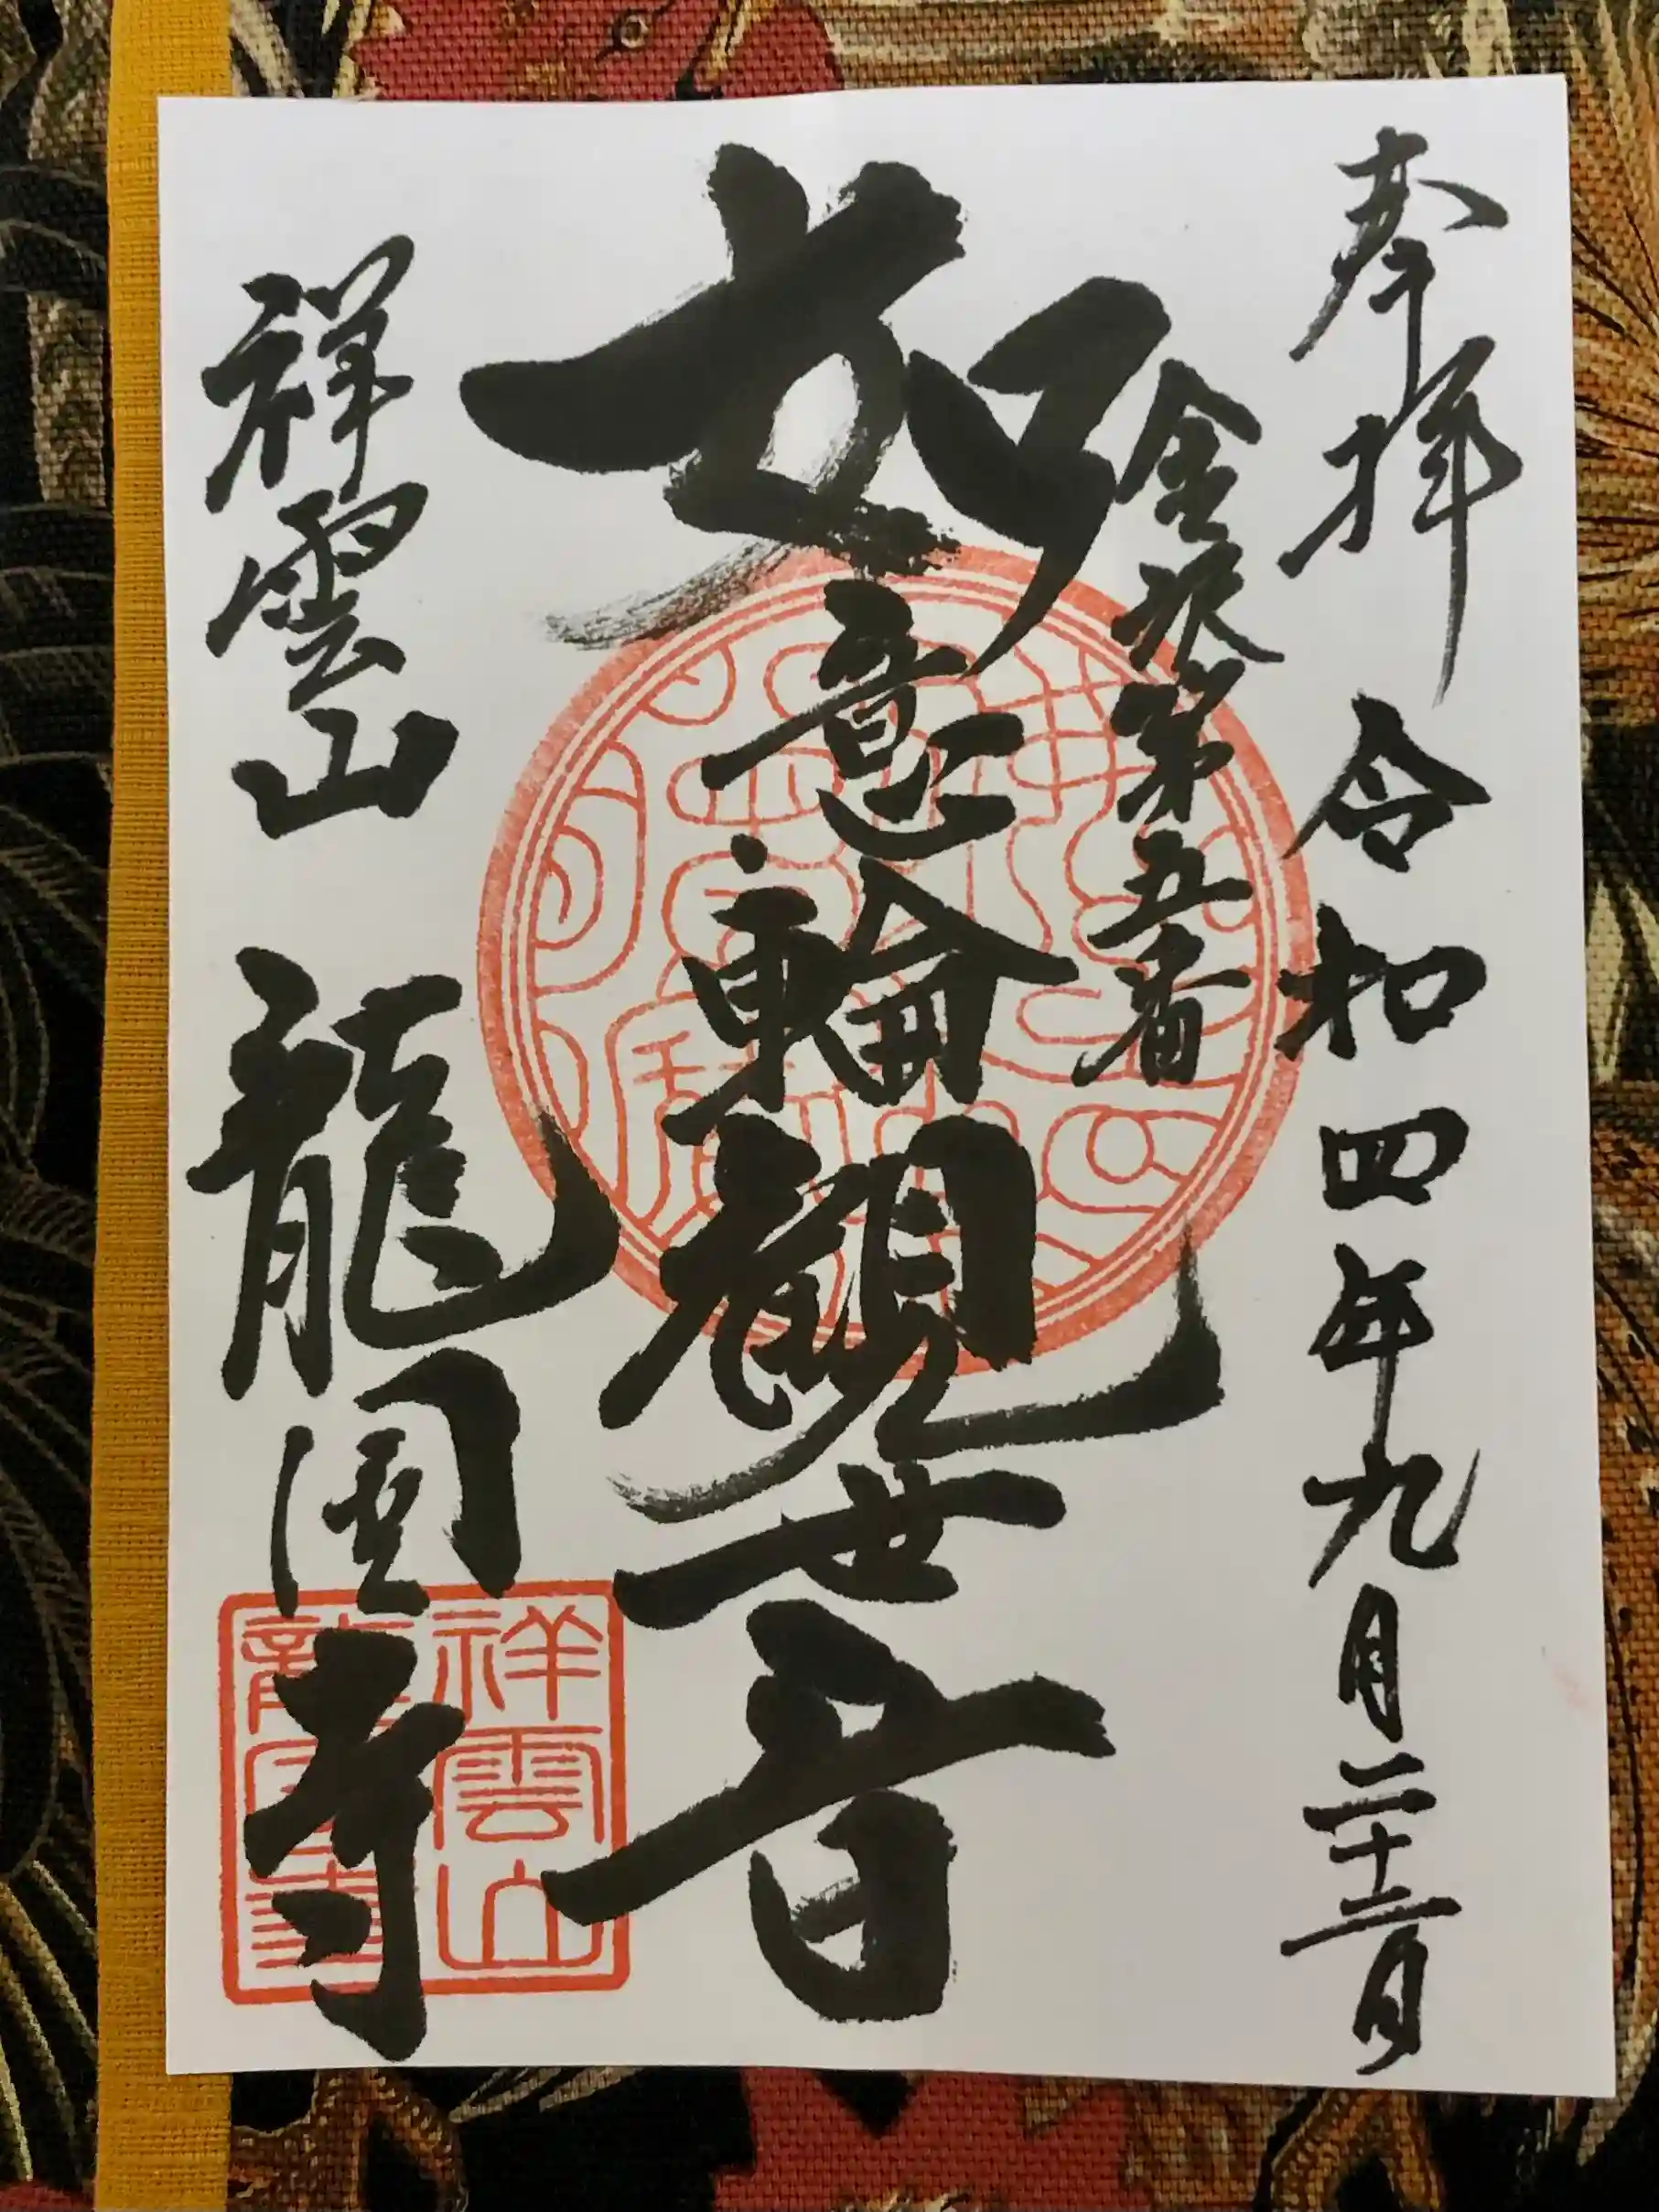 奉拝 令和四年九月二十二日
金沢第五番
如意輪観世音
祥雲山 龍國寺
祥雲山
龍國寺